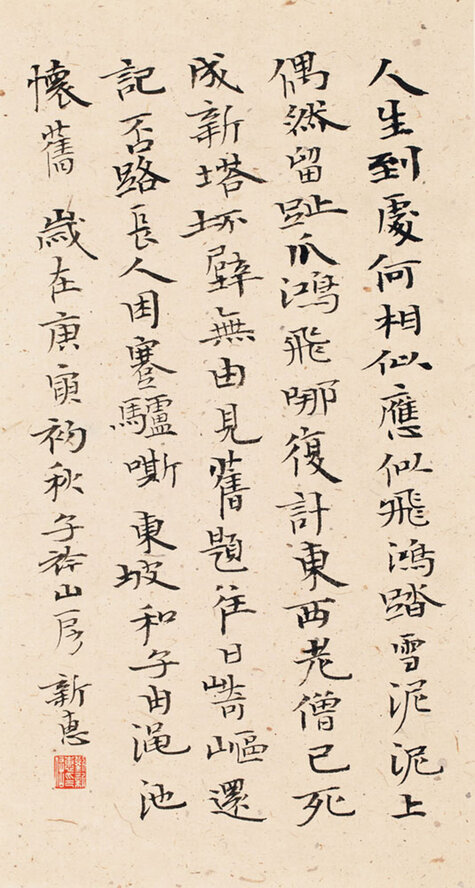 人生到處何相似應似飛鴻踏雪泥泥上
偶然留趾爪鴻飛哪復計東西老僧已死
成新塔坏壁無由見舊題往日崎嶇還
記否路長人困蹇驢嘶 東坡和子由澠池
懷舊 歲在庚寅初秋子谷山房 新惠